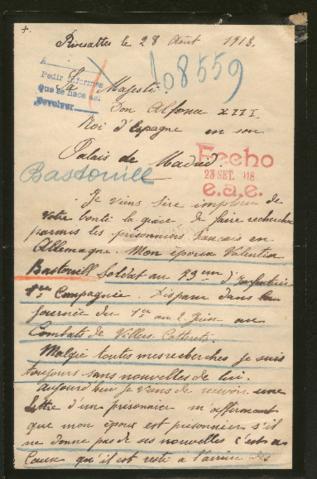 +.
Rivesaltes le 28 Août 1918.
A
Pedir informes
que se hace así
Devolver
108559
Sa Majesté
Don Alfonse XIII
Roi d'Espagne en son
Palais de Madrid.
Fecho
23 SET. 918
e.a.e.
Bastouill
Je viens sire implorer de
votre bonté la grâce de faire rechercher
parmis les prisonniers français en
Allemagne. Mon époux Valentin
Bastouill Soldat au 19em d'Infanterie
Compagnie. Disparu dans la
journée du 1er au 2 Juin au
Combats de Villers Cotterets.
Malgré toutes mes recherches je suis
toujours sans nouvelles de lui.
Aujourd'hui je viens de recevoir une
lettre d'un prisonnier m'affirmant
que mon époux est prisonnier s'il
ne donne pas de ses nouvelles c'est a
Cause qu'il est resté à l'arrière des